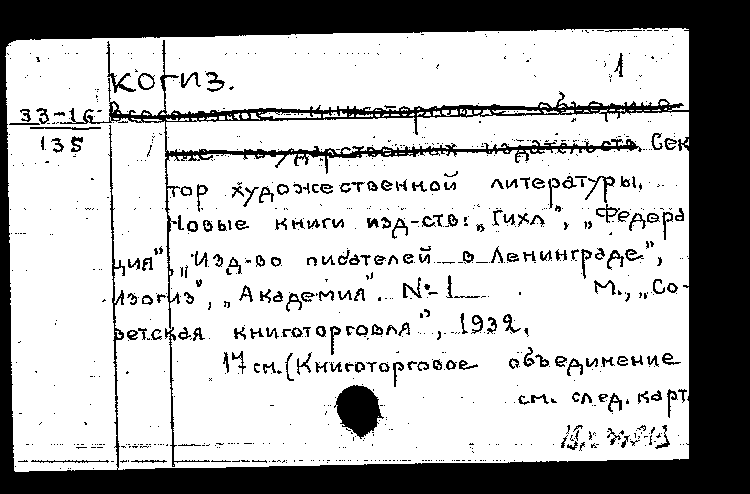 1
КОГИЗ.
33-16 Всесоюзное книготорговое объедине-
135 ние государственных издательств. Сек
тор художественной литературы.
Новые книги изд-ств: „Гихл", „Федера
ция", „Изд-во писателей в Ленинграде",
Изогиз", „Академия". №1 М., „Со-
ветская книготорговля", 1932.
17 см. (Книготорговое объединение
см. след. карт.